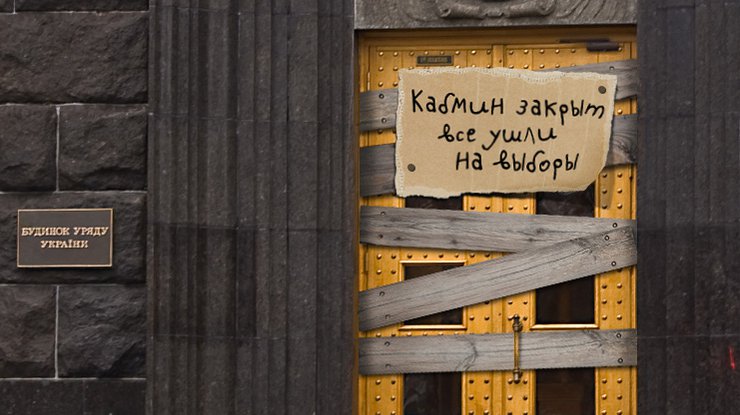 БУДИНОК УРЯДУ
УКРАЇНИ
Кабмин закрыт
все ушли
на выборы